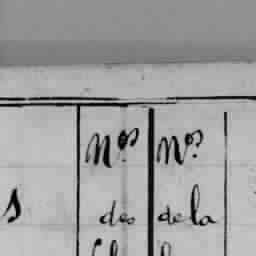 Nos No
s des de la